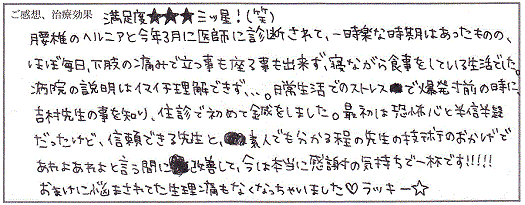 ご感想、治療効果 満足度★★★三ッ星!(笑)
腰椎のヘルニアと今年3月に医師に診断されて、一時楽な時期はあったものの、
ほぼ毎日、下肢の痛みで立つ事も座る事も出来ず、寝ながら食事をしている生活でした。
病院の説明はイマイチ理解できず、、、。日常生活でのストレスで爆発寸前の時に、
吉村先生の事を知り、往診で初めて金鍼をしました。最初は恐怖心と半信半疑
だったけど、信頼できる先生と、素人でも分かる程の先生の技術のおかげで
あれよあれよと言う間に改善して、今は本当に感謝の気持ちで一杯です!!!!!
おまけに悩まされてた生理痛もなくなっちゃいました♡ラッキー☆